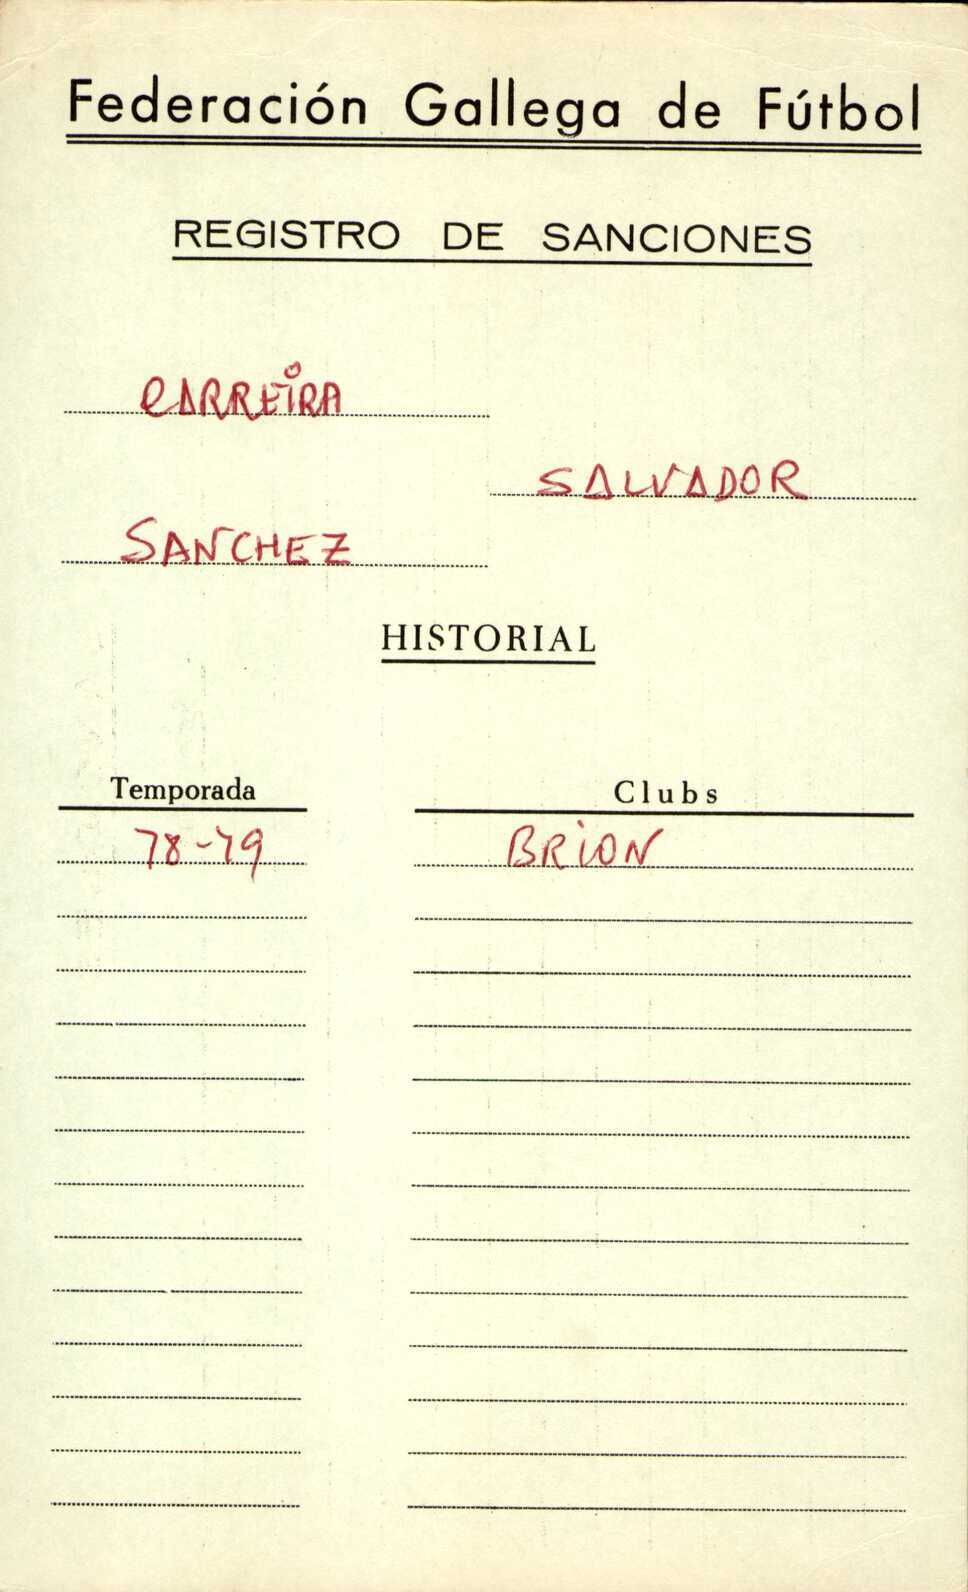 Federación Gallega de Fútbol
REGISTRO DE SANCIONES
CARREIRA
SALVADOR
SANCHEZ
HISTORIAL
Temporada Clubs
78-79 BRION